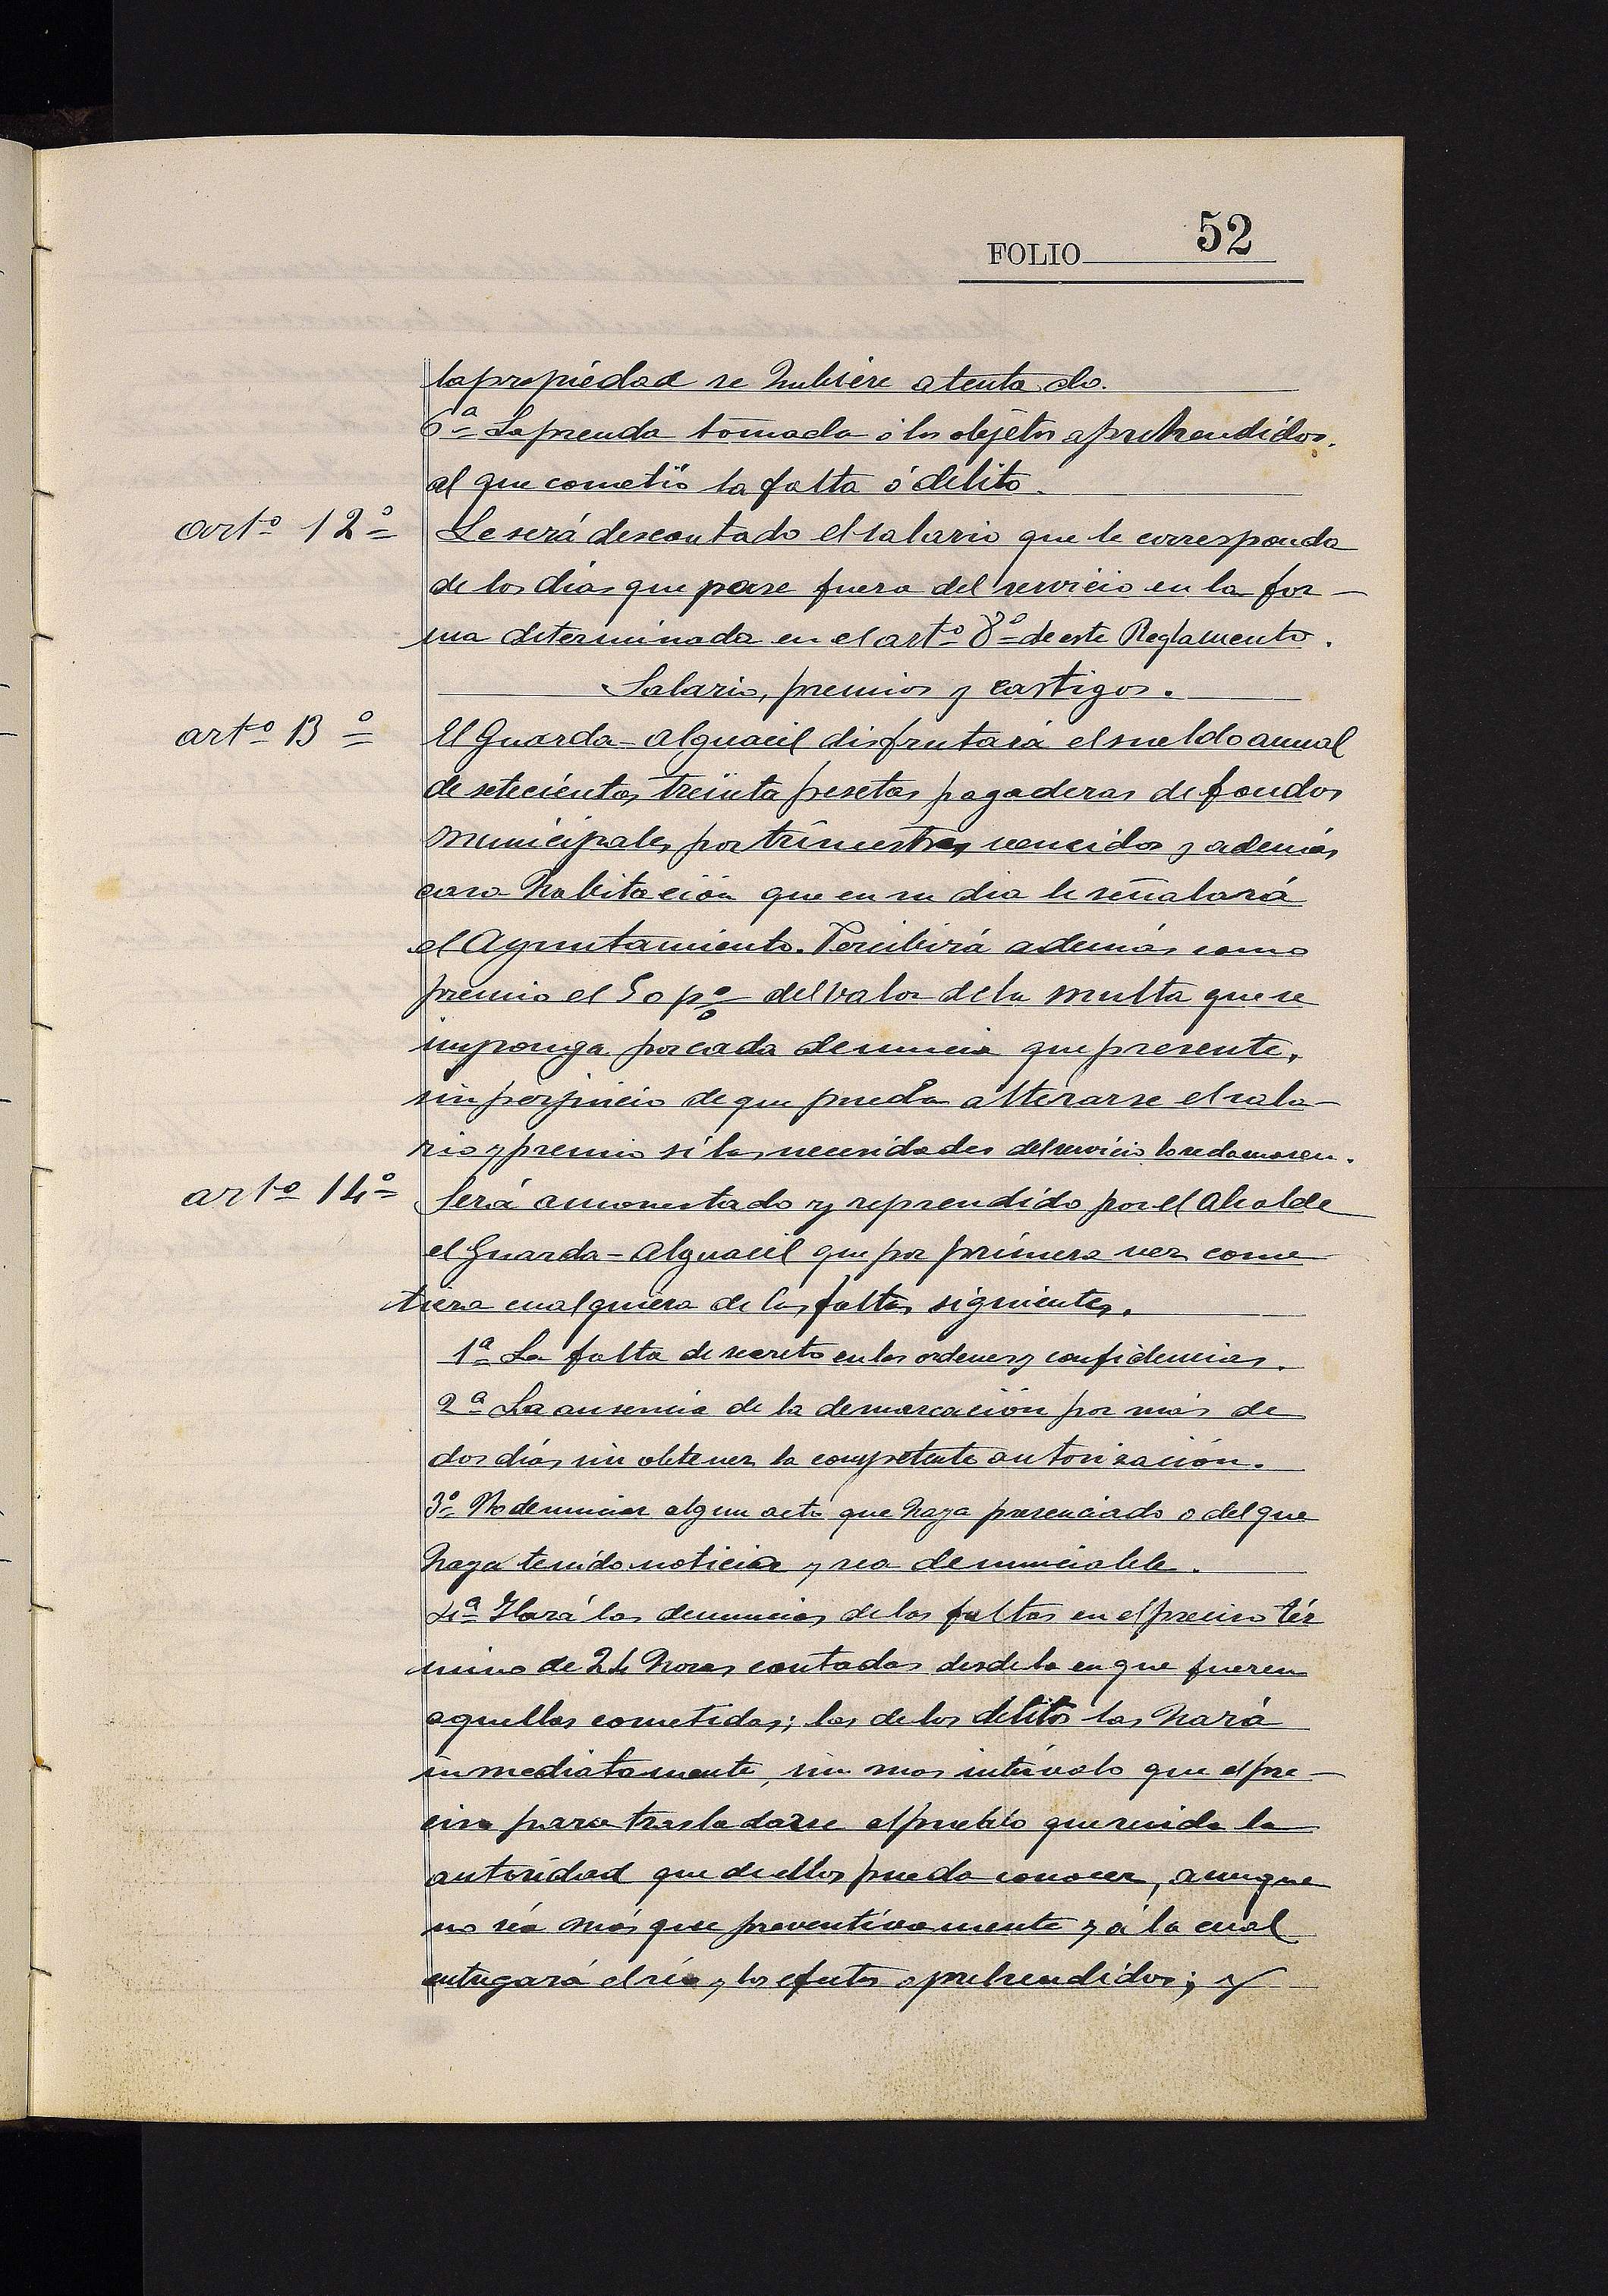 FOLIO 52
la propiedad se hubiere atentado.
6ª La prenda tomada ó los objetos aprehendidos.
al que cometió la falta ó delito.
artº 12º Le será descontado el salario que le corresponda
de los dias que pase fuera del servicio en la for-
ma determinada en el artº 8º de este Reglamento.
Salario, premios y castigos.
artº 13º El Guarda-Alguacil disfrutará el sueldo anual
de setecientas treinta pesetas pagaderas de fondos
Municipales por trimestres vencidos y además
casa habitación que en su dia le señalará
el Ayuntamiento. Percibirá además como
premio el 50 pº del valor de la multa que se
imponga por cada denuncia que presente,
sin perjuicio de que pueda alterarse el sala-
rio y premio si las necesidades del servicio lo reclamasen.
artº 14º Será amonestado y reprendido por el Alcalde
el Guarda-Alguacil que por primera vez come
tiera cualquiera de las faltas siguientes.
1ª La falta de secreto en las ordenes y confidencias.
2ª La ausencia de la demarcación por más de
dos dias sin obtener la competente autorización.
3º No denunciar algun acto que haya presenciado o del que
haya tenido noticia y sea denunciable.
4ª Hará las denuncias de las faltas en el preciso tér
mino de 24 horas contadas desde la en que fueren
aquellas cometidas; las de los delitos las hará
inmediatamente, sin mas intérvalo que el pre-
ciso para trasladarse al pueblo que resida la
autoridad que de ellos pueda conocer, aunque
no sea más que preventivamente y á la cual
entregará el reo y los efectos aprehendidos; y